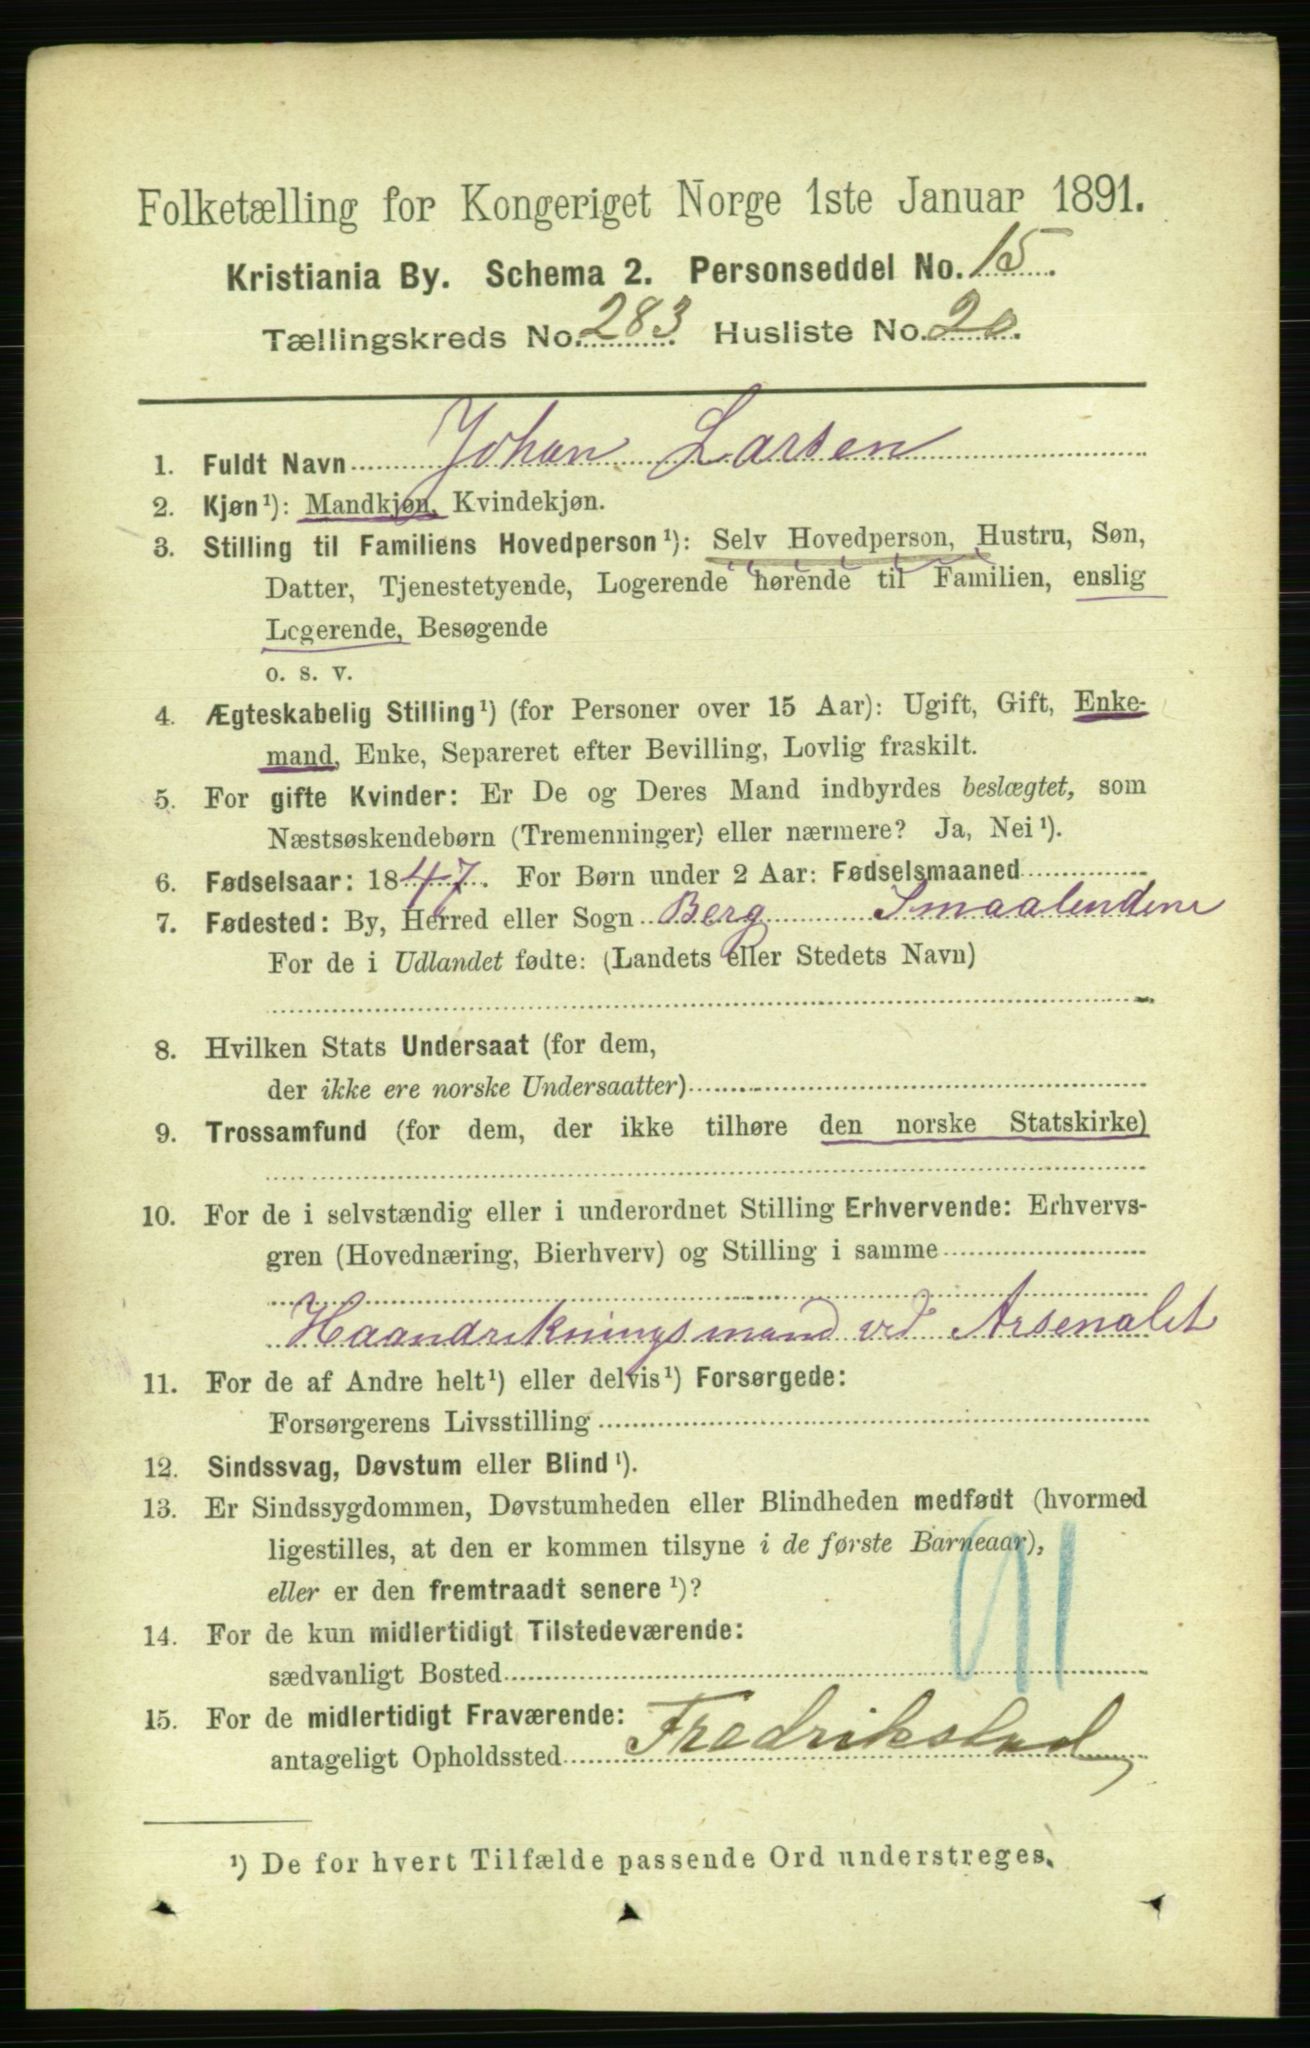 Folketælling for Kongeriget Norge 1ste Januar 1891.
Kristiania By. Schema 2. Personseddel No. 15.
Tællingskreds No. 283. Husliste No. 20.
1. Fuldt Navn Johan Larsen
2. Kjøn ¹): Mandkjøn, Kvindekjøn.
3. Stilling til Familiens Hovedperson ¹): Selv Hovedperson, Hustru, Søn,
Datter, Tjenestetyende, Logerende hørende til Familien, enslig
Logerende, Besøgende
o. s. v.
4. Ægteskabelig Stilling ¹) (for Personer over 15 Aar): Ugift, Gift, Enke-
mand, Enke, Separeret efter Bevilling, Lovlig fraskilt.
5. For gifte Kvinder: Er De og Deres Mand indbyrdes beslægtet, som
Næstsøskendebørn (Tremenninger) eller nærmere? Ja, Nei ¹).
6. Fødselsaar: 1847. For Børn under 2 Aar: Fødselsmaaned
7. Fødested: By, Herred eller Sogn Berg Smaalendene
For de i Udlandet fødte: (Landets eller Stedets Navn)
8. Hvilken Stats Undersaat (for dem,
der ikke ere norske Undersaatter)
9. Trossamfund (for dem, der ikke tilhøre den norske Statskirke)
10. For de i selvstændig eller i underordnet Stilling Erhvervende: Erhvervs-
gren (Hovednæring, Bierhverv) og Stilling i samme
Haandrekningsmand ved Arsenalet
11. For de af Andre helt ¹) eller delvis ¹) Forsørgede:
Forsørgerens Livsstilling
12. Sindssvag, Døvstum eller Blind ¹).
13. Er Sindssygdommen, Døvstumheden eller Blindheden medfødt (hvormed
ligestilles, at den er kommen tilsyne i de første Barneaar),
eller er den fremtraadt senere ¹)?
91
14. For de kun midlertidigt Tilstedeværende:
sædvanligt Bosted
15. For de midlertidigt Fraværende:
antageligt Opholdssted Fredrikstad
¹) De for hvert Tilfælde passende Ord understreges.